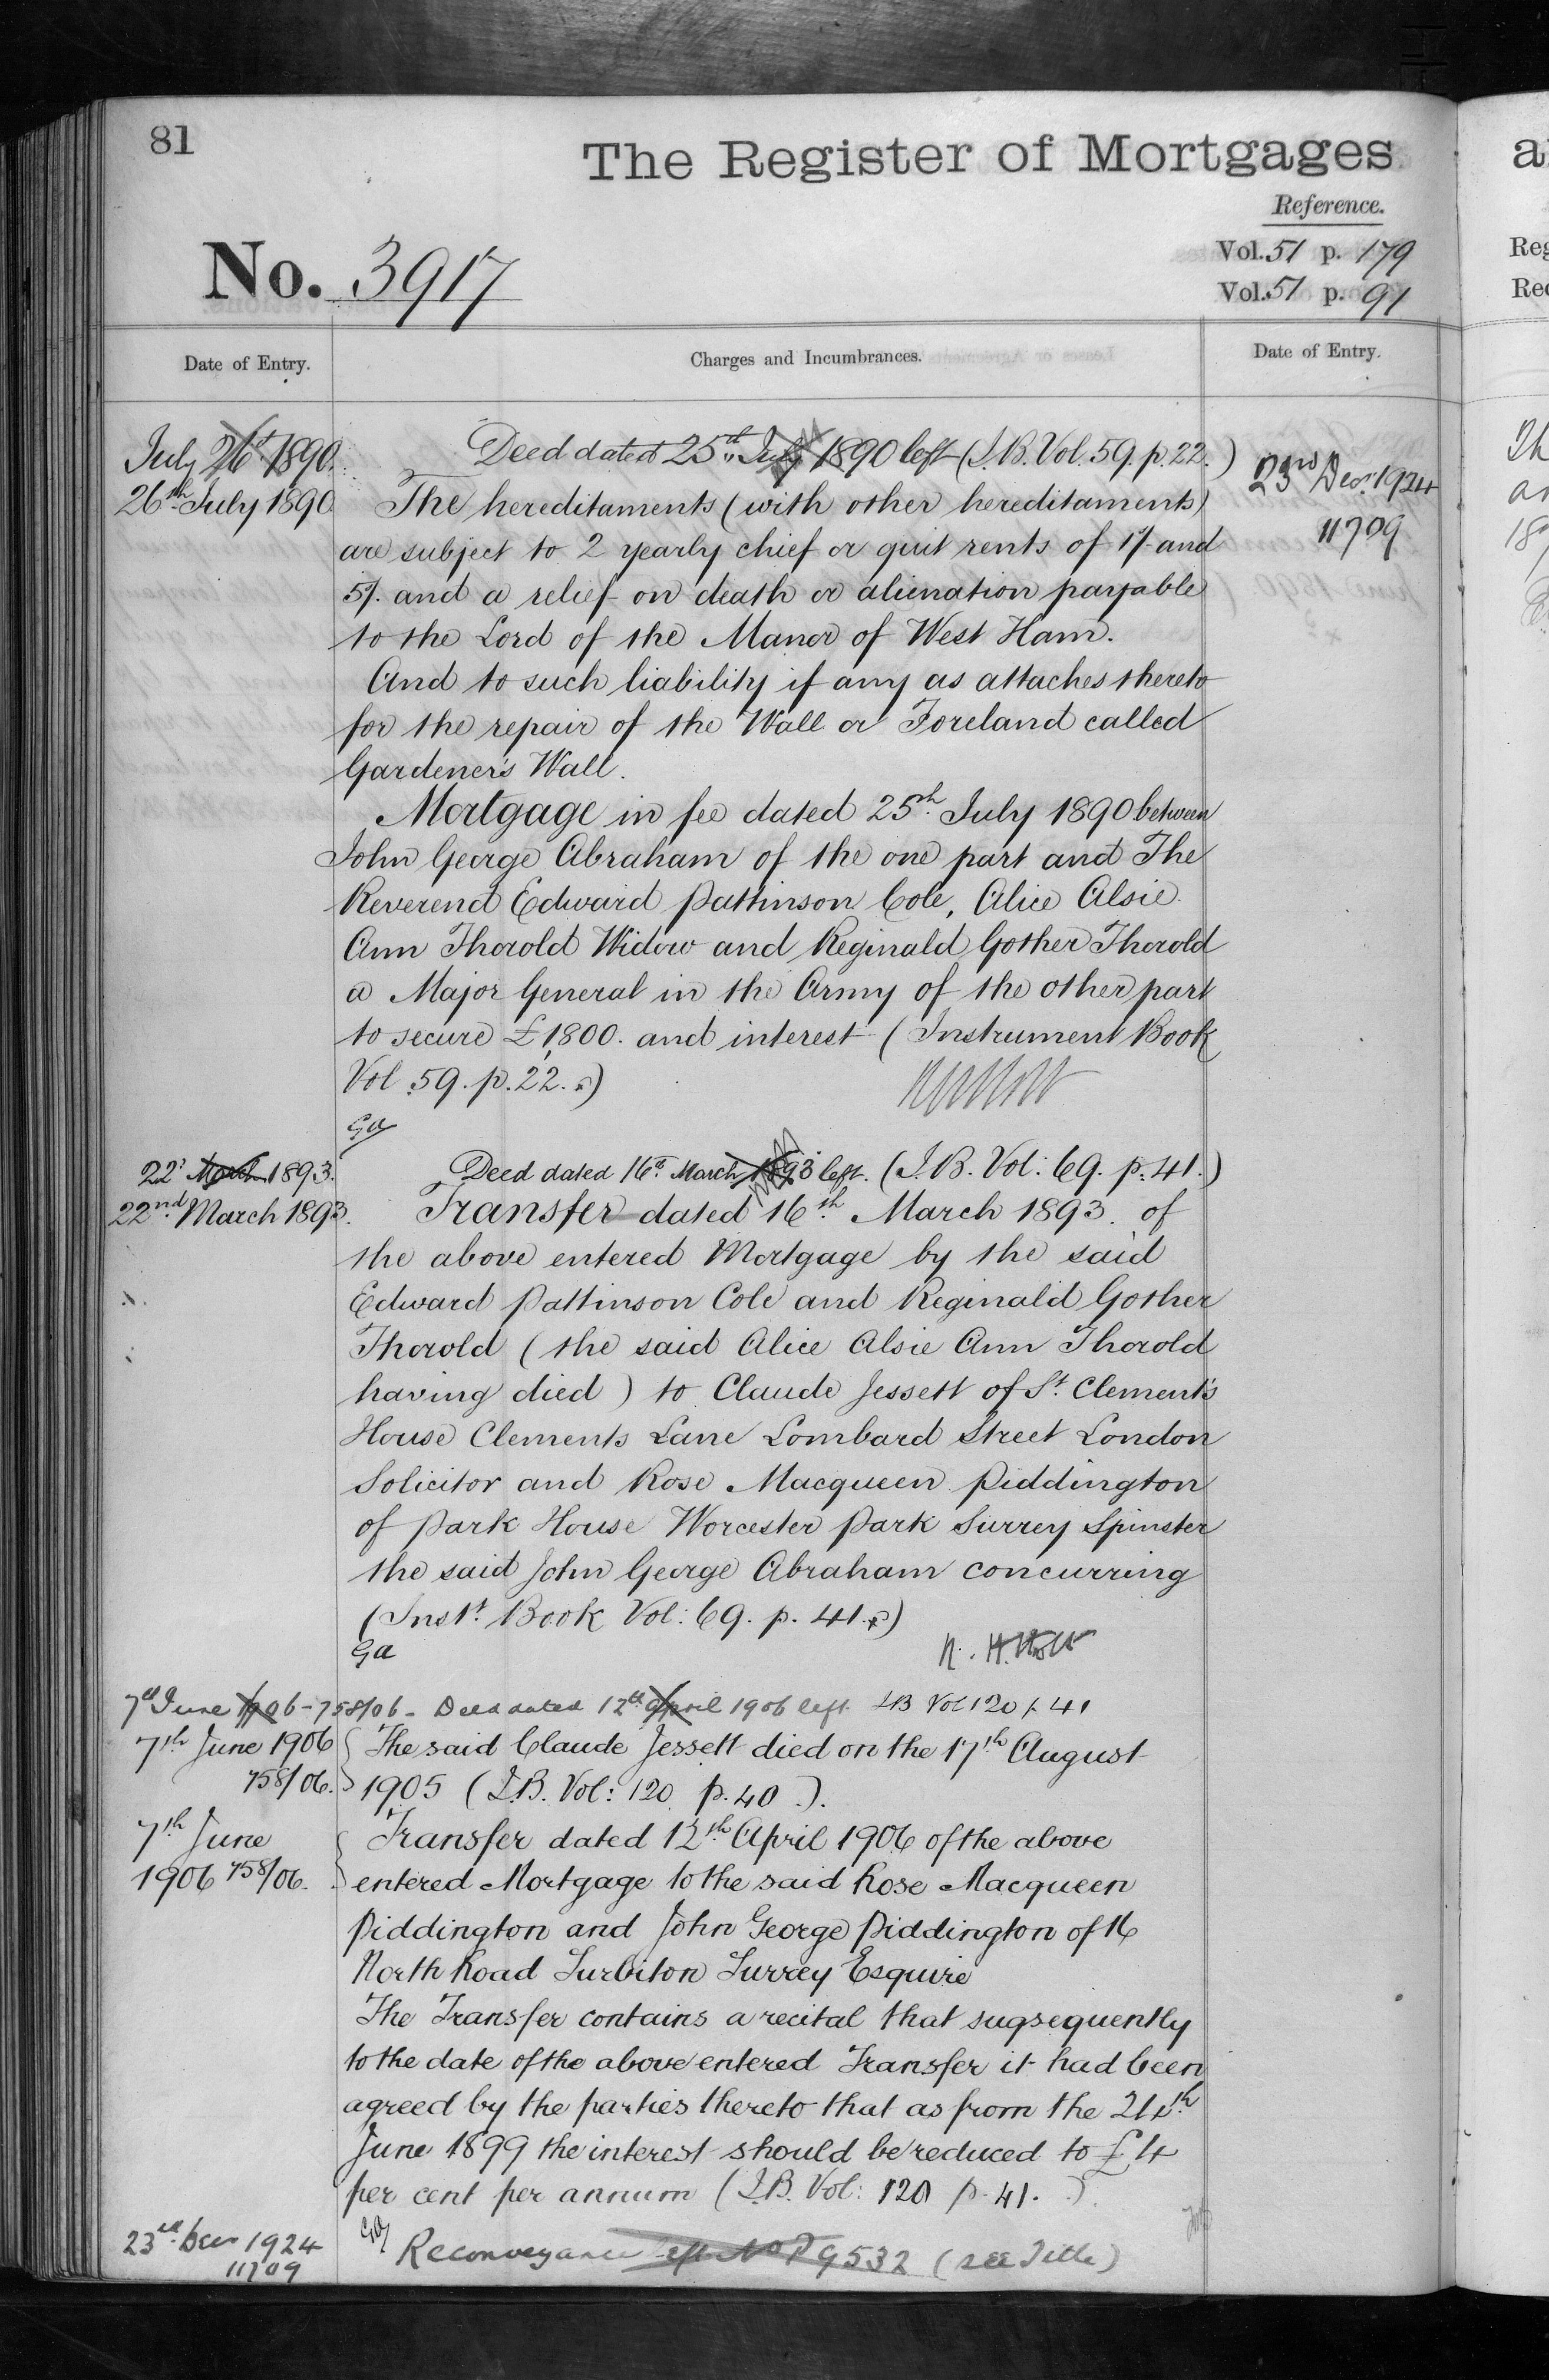 81
The Register of Mortgages
Reference.
Vol. 51 p. 179
No. 3917
Vol. 51 p. 91
Date of Entry.
Charges and Incumbrances.
Date of Entry.
July 26th 1890. Deed dated 25th July 1890 left (I.B. Vol. 59. p. 22.)
26th July 1890 The hereditaments (with other hereditaments)
23rd Decr. 1924
11709
are subject to 2 yearly chief or quit rents of 1/- and
5/. and a relief on death or alienation payable
to the Lord of the Manor of West Ham.
And to such liability if any as attaches thereto
for the repair of the Wall or Foreland called
Gardener's Wall.
Mortgage in fee dated 25th July 1890 between
John George Abraham of the one part and The
Reverend Edward Pattinson Cole, Alice Alsie
Ann Thorold Widow and Reginald Gother Thorold
a Major General in the Army of the other part
to secure £1,800. and interest (Instrument Book
Vol. 59. p. 22.)
Ga
22d March 1893. Deed dated 16th March 1893 left. (I.B. Vol: 69. p. 41.)
22nd March 1893. Transfer dated 16th March 1893. of
the above entered Mortgage by the said
Edward Pattinson Cole and Reginald Gother
Thorold (the said Alice Alsie Ann Thorold
having died) to Claude Jessett of St. Clement's
House Clements Lane Lombard Street London
Solicitor and Rose Macqueen Piddington
of Park House Worcester Park Surrey Spinster
the said John George Abraham concurring
(Inst. Book Vol: 69. p. 41.)
Ga
7th June 1906 - 758/06 - Deed dated 12th April 1906 left I.B Vol 120 p. 41
7th June 1906 The said Claude Jessett died on the 17th August
758/06. 1905 (I.B. Vol: 120 p. 40.).
7th June Transfer dated 12th April 1906 of the above
1906 758/06. entered Mortgage to the said Rose Macqueen
Piddington and John George Piddington of 16
North Road Surbiton Surrey Esquire
The Transfer contains a recital that sugsequently
to the date of the above entered Transfer it had been
agreed by the parties thereto that as from the 24th
June 1899 the interest should be reduced to £4
per cent per annum (I.B. Vol: 120 p. 41.)
23rd Decr 1924 Reconveyance left No P9532 (see Title)
11709
a
Reg
Rec
Th
an
18